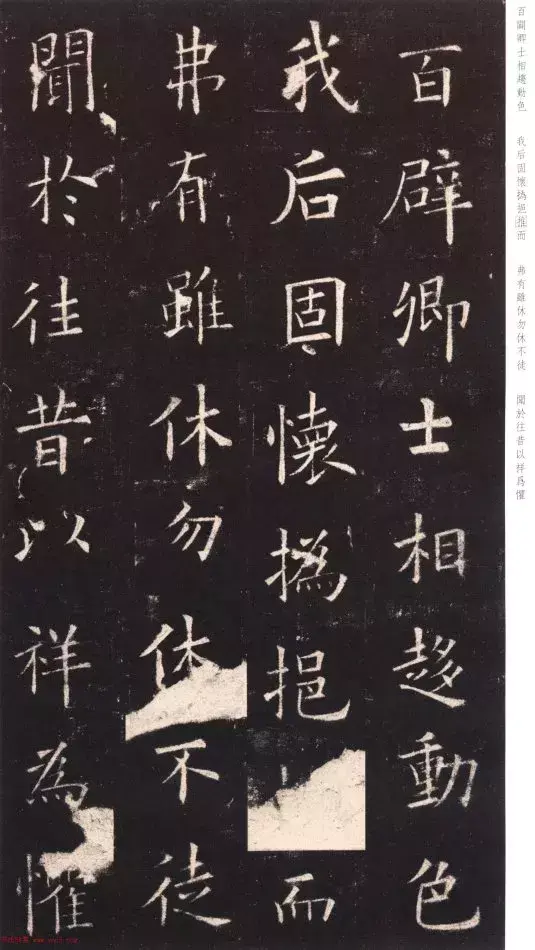 百闢卿士相趨動色 我后固懷撝挹推而 弗有雖休勿休不徒 聞於往昔以祥爲懼
百辟卿士相趍動色
我后固懷撝挹而
弗有雖休勿休不徒
聞於往昔以祥為懼